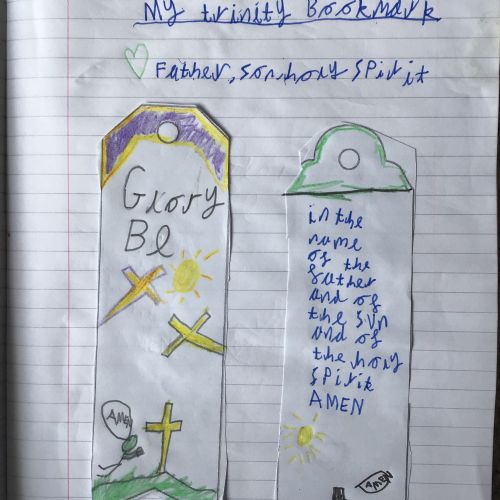 My trinity Bookmark
Father, son, holy Spirit
Glory
Be
AMEN
in the
name
of the
father
and of
the sun
and of
the holy
spirit
AMEN
AMEN